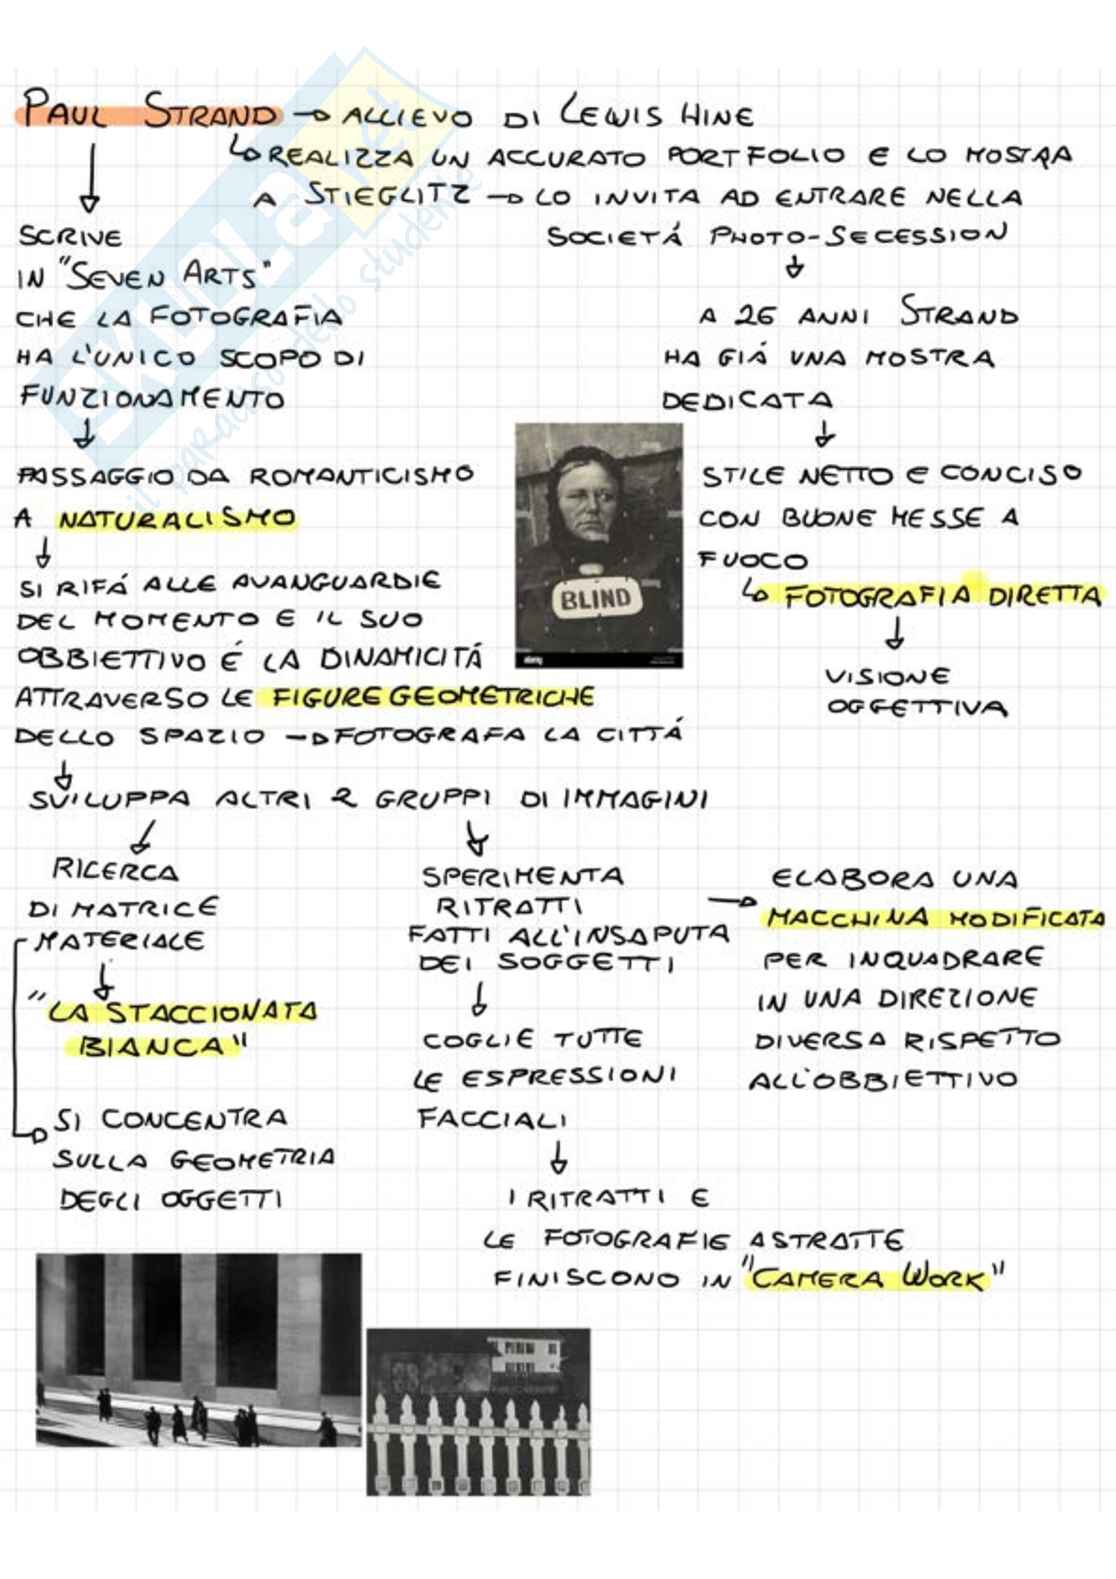 PAUL STRAND → ALLIEVO DI LEWIS HINE
↳ REALIZZA UN ACCURATO PORTFOLIO E LO MOSTRA
A STIEGLITZ → LO INVITA AD ENTRARE NELLA
SOCIETÁ PHOTO-SECESSION
A 26 ANNI STRAND
HA GIÁ UNA MOSTRA
DEDICATA
STILE NETTO E CONCISO
CON BUONE MESSE A
FUOCO
↳ FOTOGRAFIA DIRETTA
VISIONE
OGGETTIVA
SCRIVE
IN "SEVEN ARTS"
CHE LA FOTOGRAFIA
HA L'UNICO SCOPO DI
FUNZIONAMENTO
PASSAGGIO DA ROMANTICISMO
A NATURALISMO
SI RIFÁ ALLE AVANGUARDIE
DEL MOMENTO E IL SUO
OBBIETTIVO É LA DINAMICITÁ
ATTRAVERSO LE FIGURE GEOMETRICHE
DELLO SPAZIO → FOTOGRAFA LA CITTÁ
SVILUPPA ALTRI 2 GRUPPI DI IMMAGINI
RICERCA
DI MATRICE
MATERIALE
"LA STACCIONATA
BIANCA"
SI CONCENTRA
SULLA GEOMETRIA
DEGLI OGGETTI
SPERIMENTA
RITRATTI
FATTI ALL'INSAPUTA
DEI SOGGETTI
COGLIE TUTTE
LE ESPRESSIONI
FACCIALI
I RITRATTI E
LE FOTOGRAFIE ASTRATTE
FINISCONO IN "CAMERA WORK"
→ ELABORA UNA
MACCHINA MODIFICATA
PER INQUADRARE
IN UNA DIREZIONE
DIVERSA RISPETTO
ALL'OBBIETTIVO
BLIND
alamy
SKUOLA.net
il paradiso dello studente